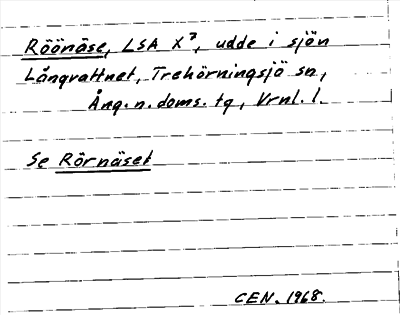 Röönäse, LSA X7, udde i sjön
Långvattnet, Trehörningsjö sn,
Ång. n. doms. tg, Vrnl. l.
Se Rörnäset
CEN. 1968.